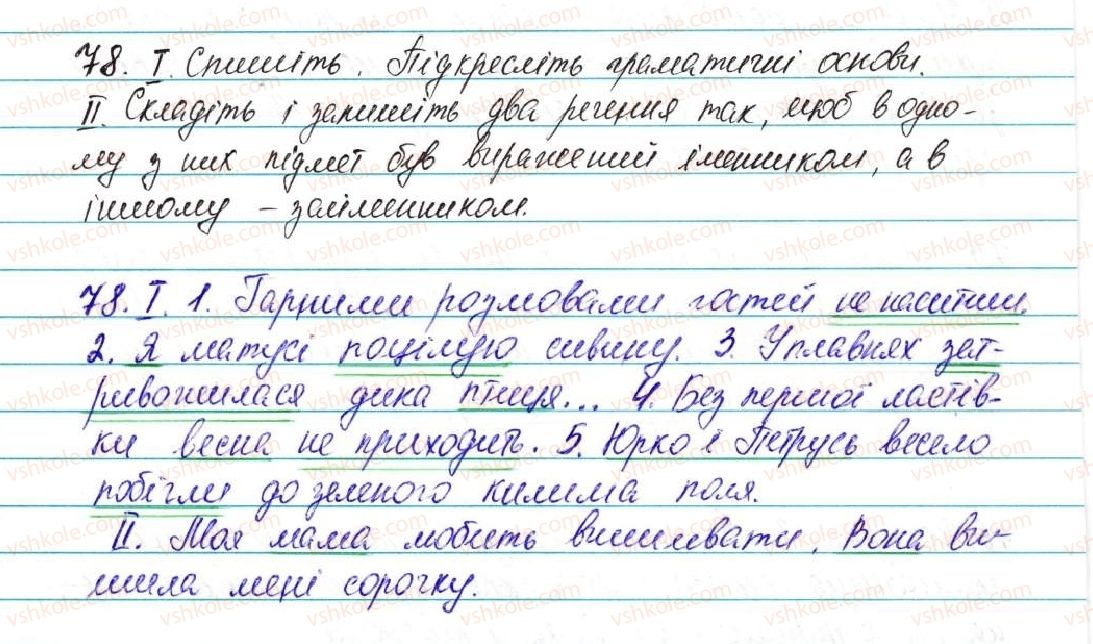 78. I. Спишіть. Підкресліть граматичні основи.
II. Складіть і запишіть два речення так, щоб в одно-
му з них підмет був виражений іменником, а в
іншому – займенником.
78. I. 1. Гарними розмовами гостей не наситиш.
2. Я матусі поцілую сивину. 3. У плавнях зат-
ривожилася дика птиця... 4. Без першої ластів-
ки весна не приходить. 5. Юрко і Петрусь весело
побігли до зеленого килима поля.
II. Моя мама любить вишивати. Вона ви-
шила мені сорочку.